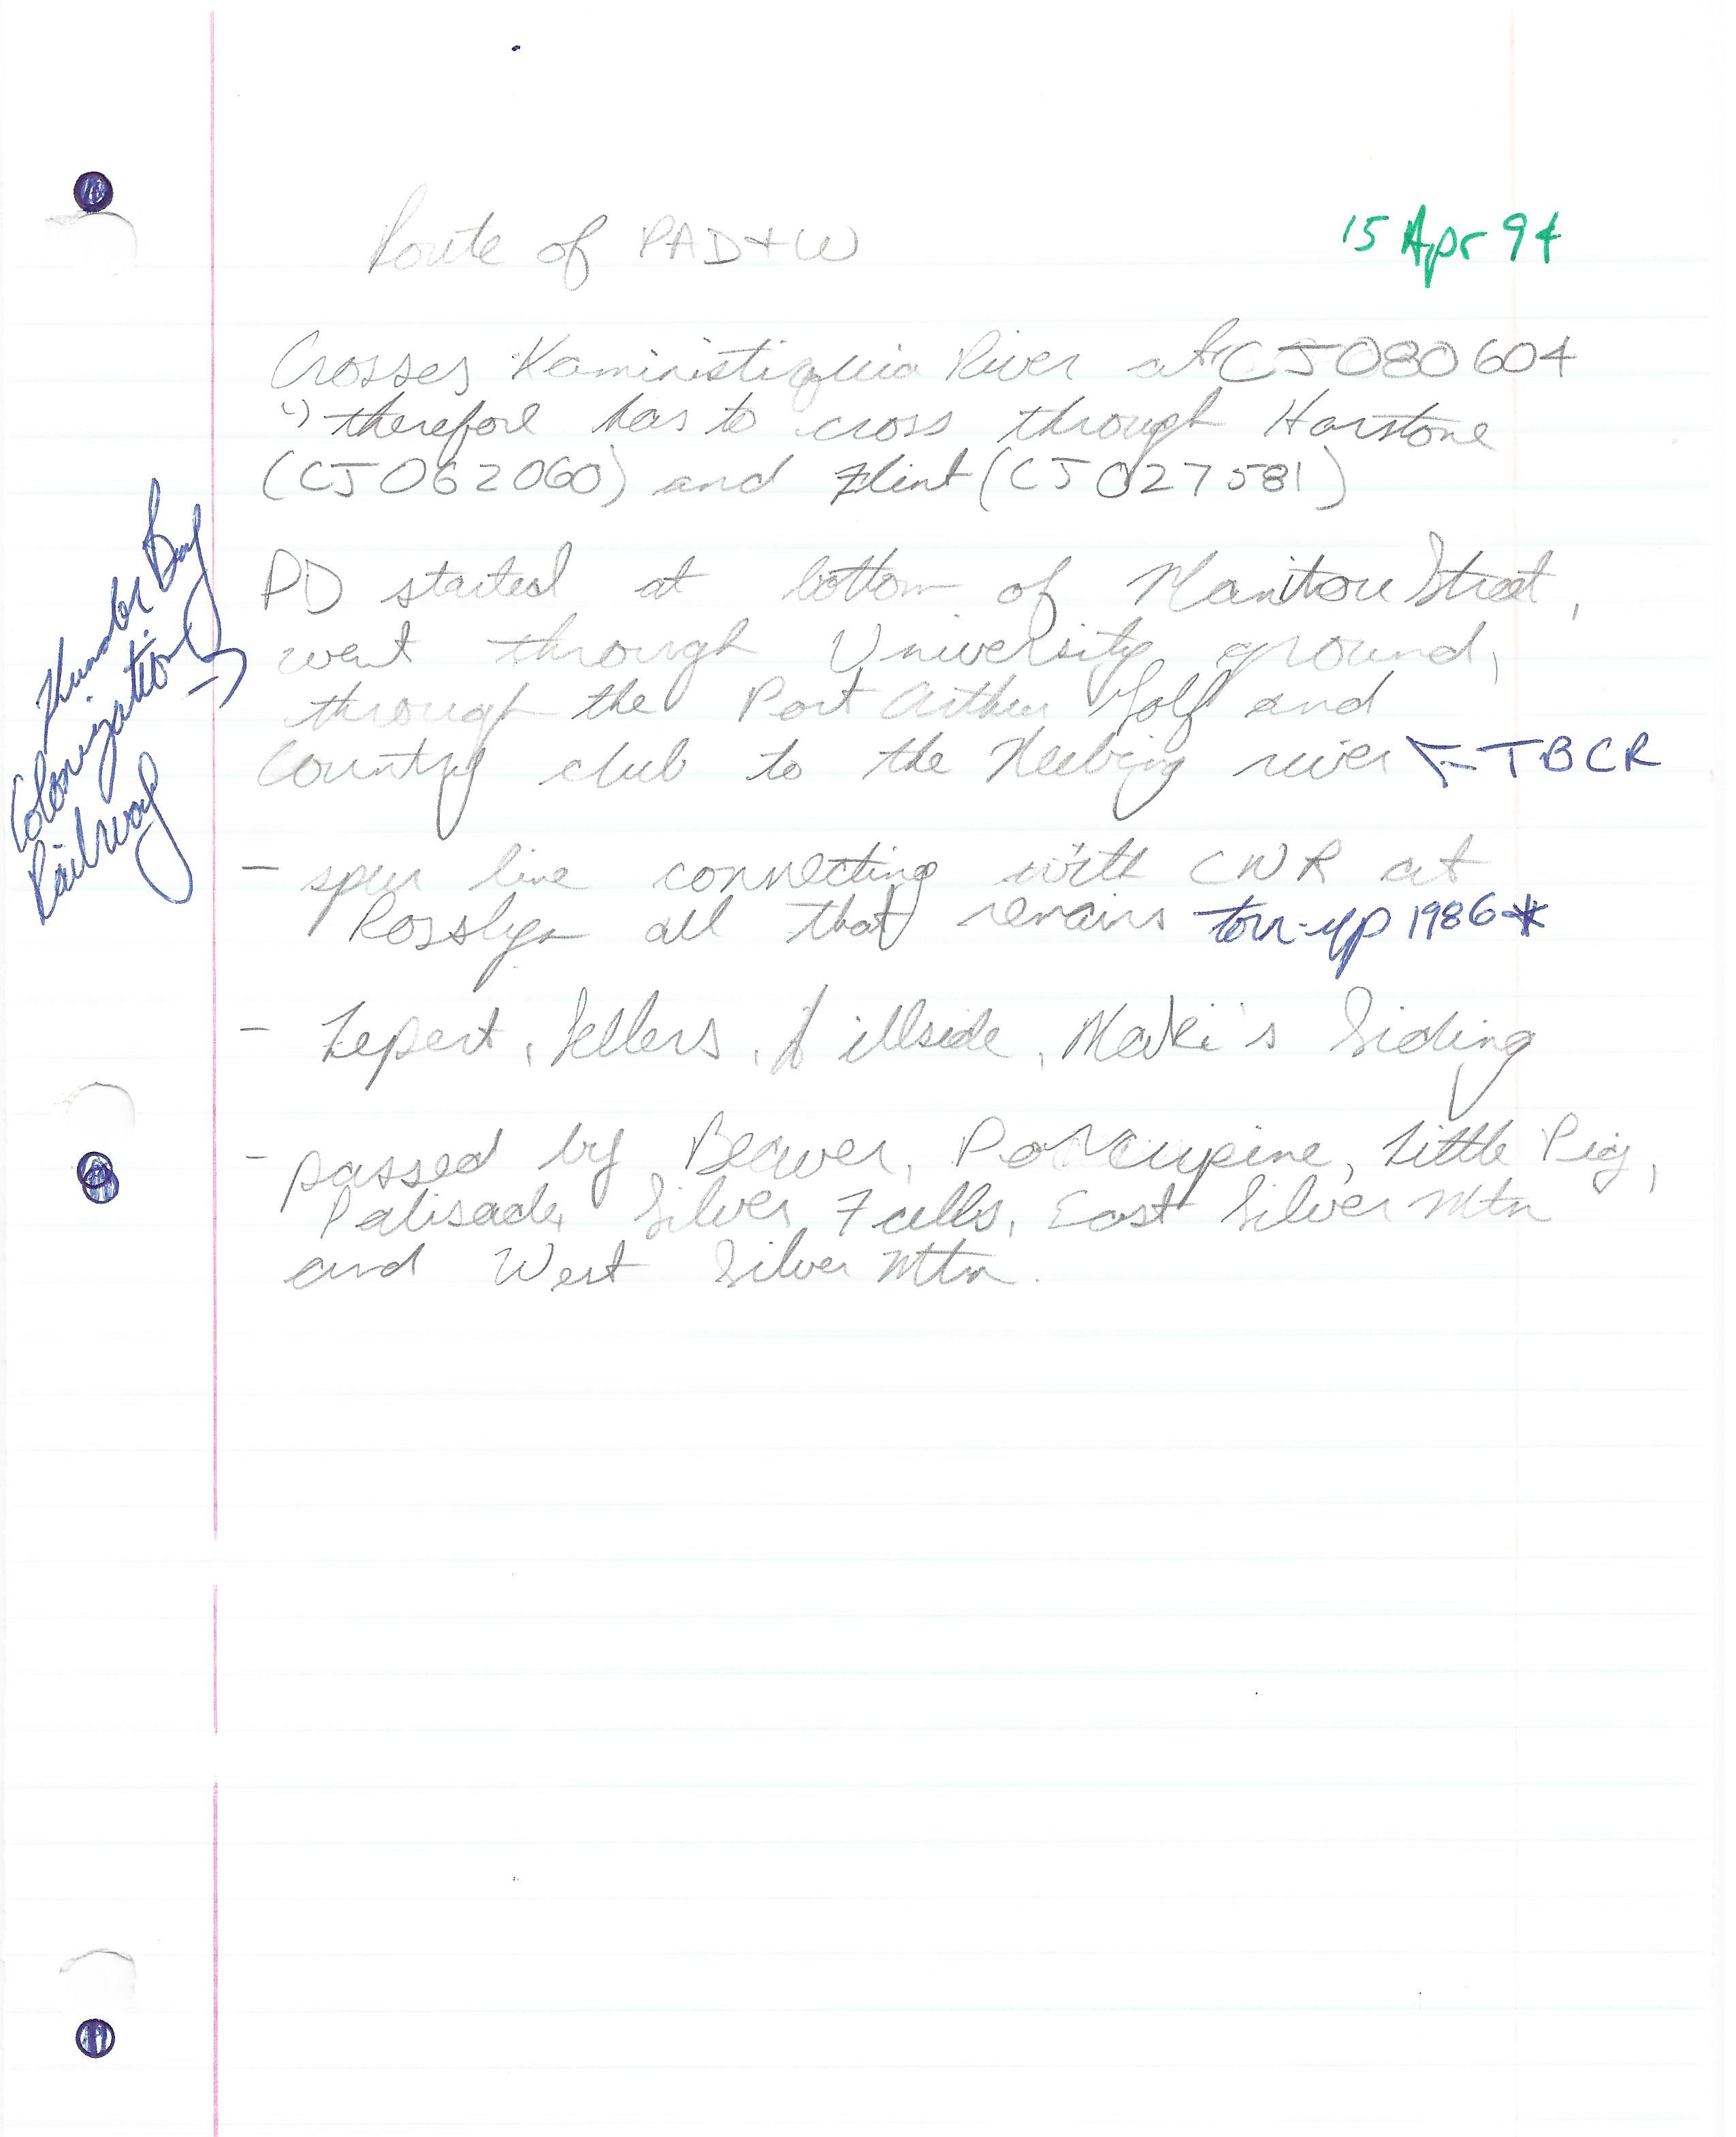 Route of PAD+W
15 Apr 94
Crosses Kaministiquia River at CJ080604
↳ therefore has to cross through Harstone
(CJ062060) and Flint (CJ027581)
Thunder Bay
Colonization
Railway →
PD started at bottom of Manitou Street,
went through University ground,
through the Port Arthur Golf and
Country club to the Neebing river ← TBCR
- spur line connecting with CNR at
Rosslyn all that remains torn-up 1986*
- Lepert, Sellers, Hillside, Maki's Siding
- passed by Beaver, Porcupine, Little Pig,
Palisade, Silver Falls, East Silver Mtn
and West Silver Mtn.